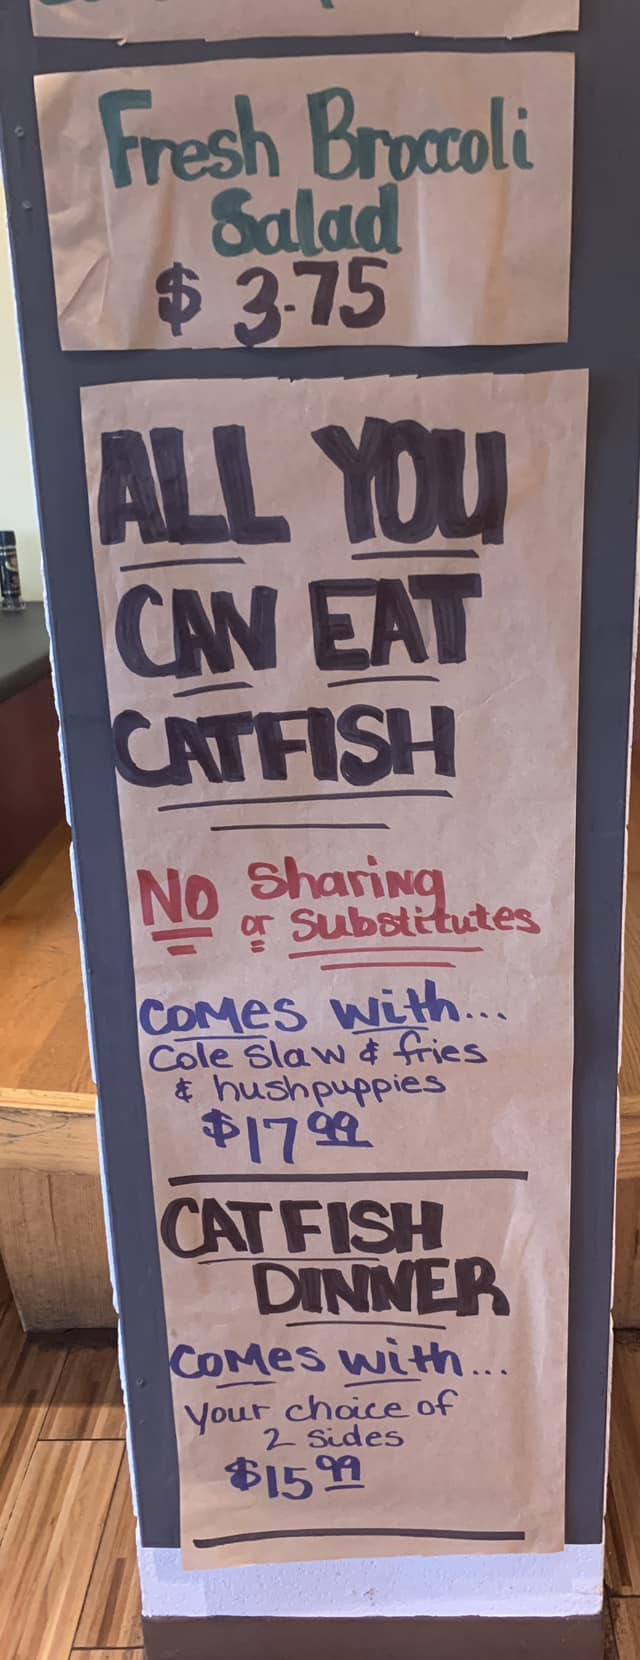 Fresh Broccoli
Salad
$ 3.75
ALL YOU
CAN EAT
CATFISH
No Sharing
or Substitutes
Comes with...
Cole Slaw & fries
& hushpuppies
$17 99
CATFISH
DINNER
Comes with...
your choice of
2 sides
$15 99